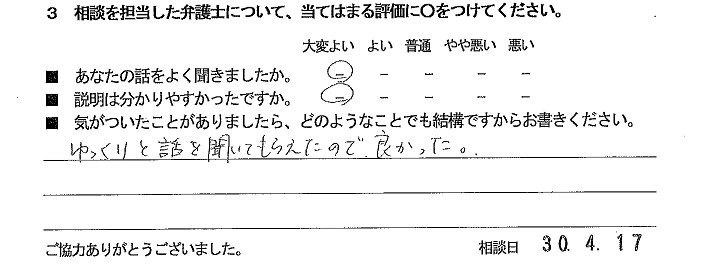 3 相談を担当した弁護士について、当てはまる評価に○をつけてください。
大変よい よい 普通 やや悪い 悪い
■ あなたの話をよく聞きましたか。 - - - - -
■ 説明は分かりやすかったですか。 - - - - -
■ 気がついたことがありましたら、どのようなことでも結構ですからお書きください。
ゆっくりと話を聞いてもらえたので、良かった。
ご協力ありがとうございました。 相談日 30.4.17